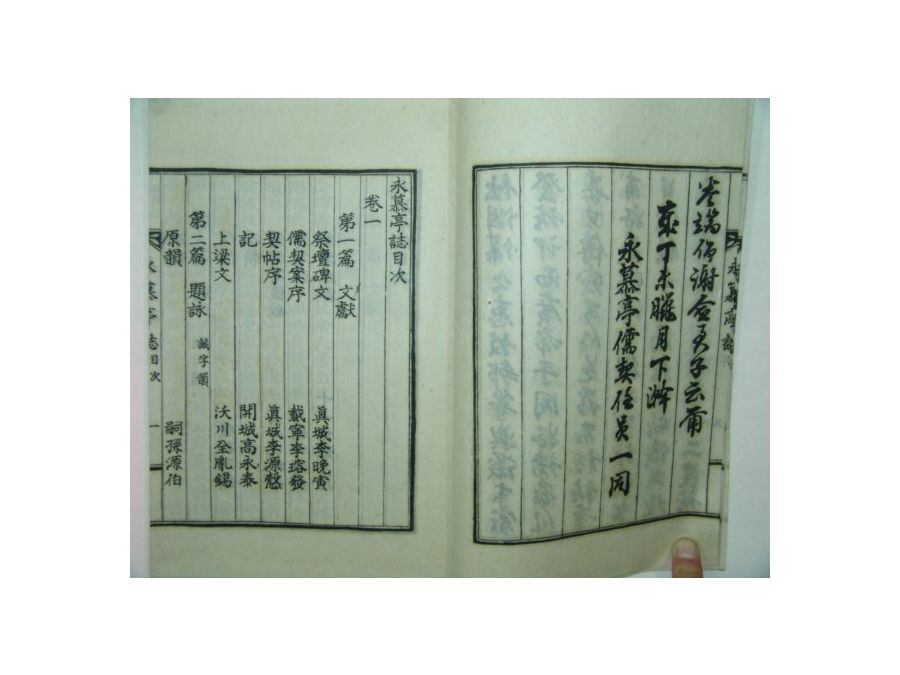 卷端仰謝僉君子云爾
歲丁未臘月下澣
永慕亭儒契任員一同
永慕亭誌目次
卷一
第一篇 文獻
祭壇碑文 眞城李晩寅
儒契案序 載寧李瑢發
契帖序 眞城李源慤
記 開城高永泰
上梁文 沃川全胤錫
第二篇 題詠 誠字韻
原韻 嗣孫源伯
永慕亭誌目次 一